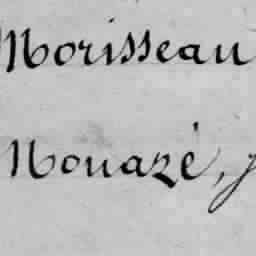 Morisseau
Mouazé,